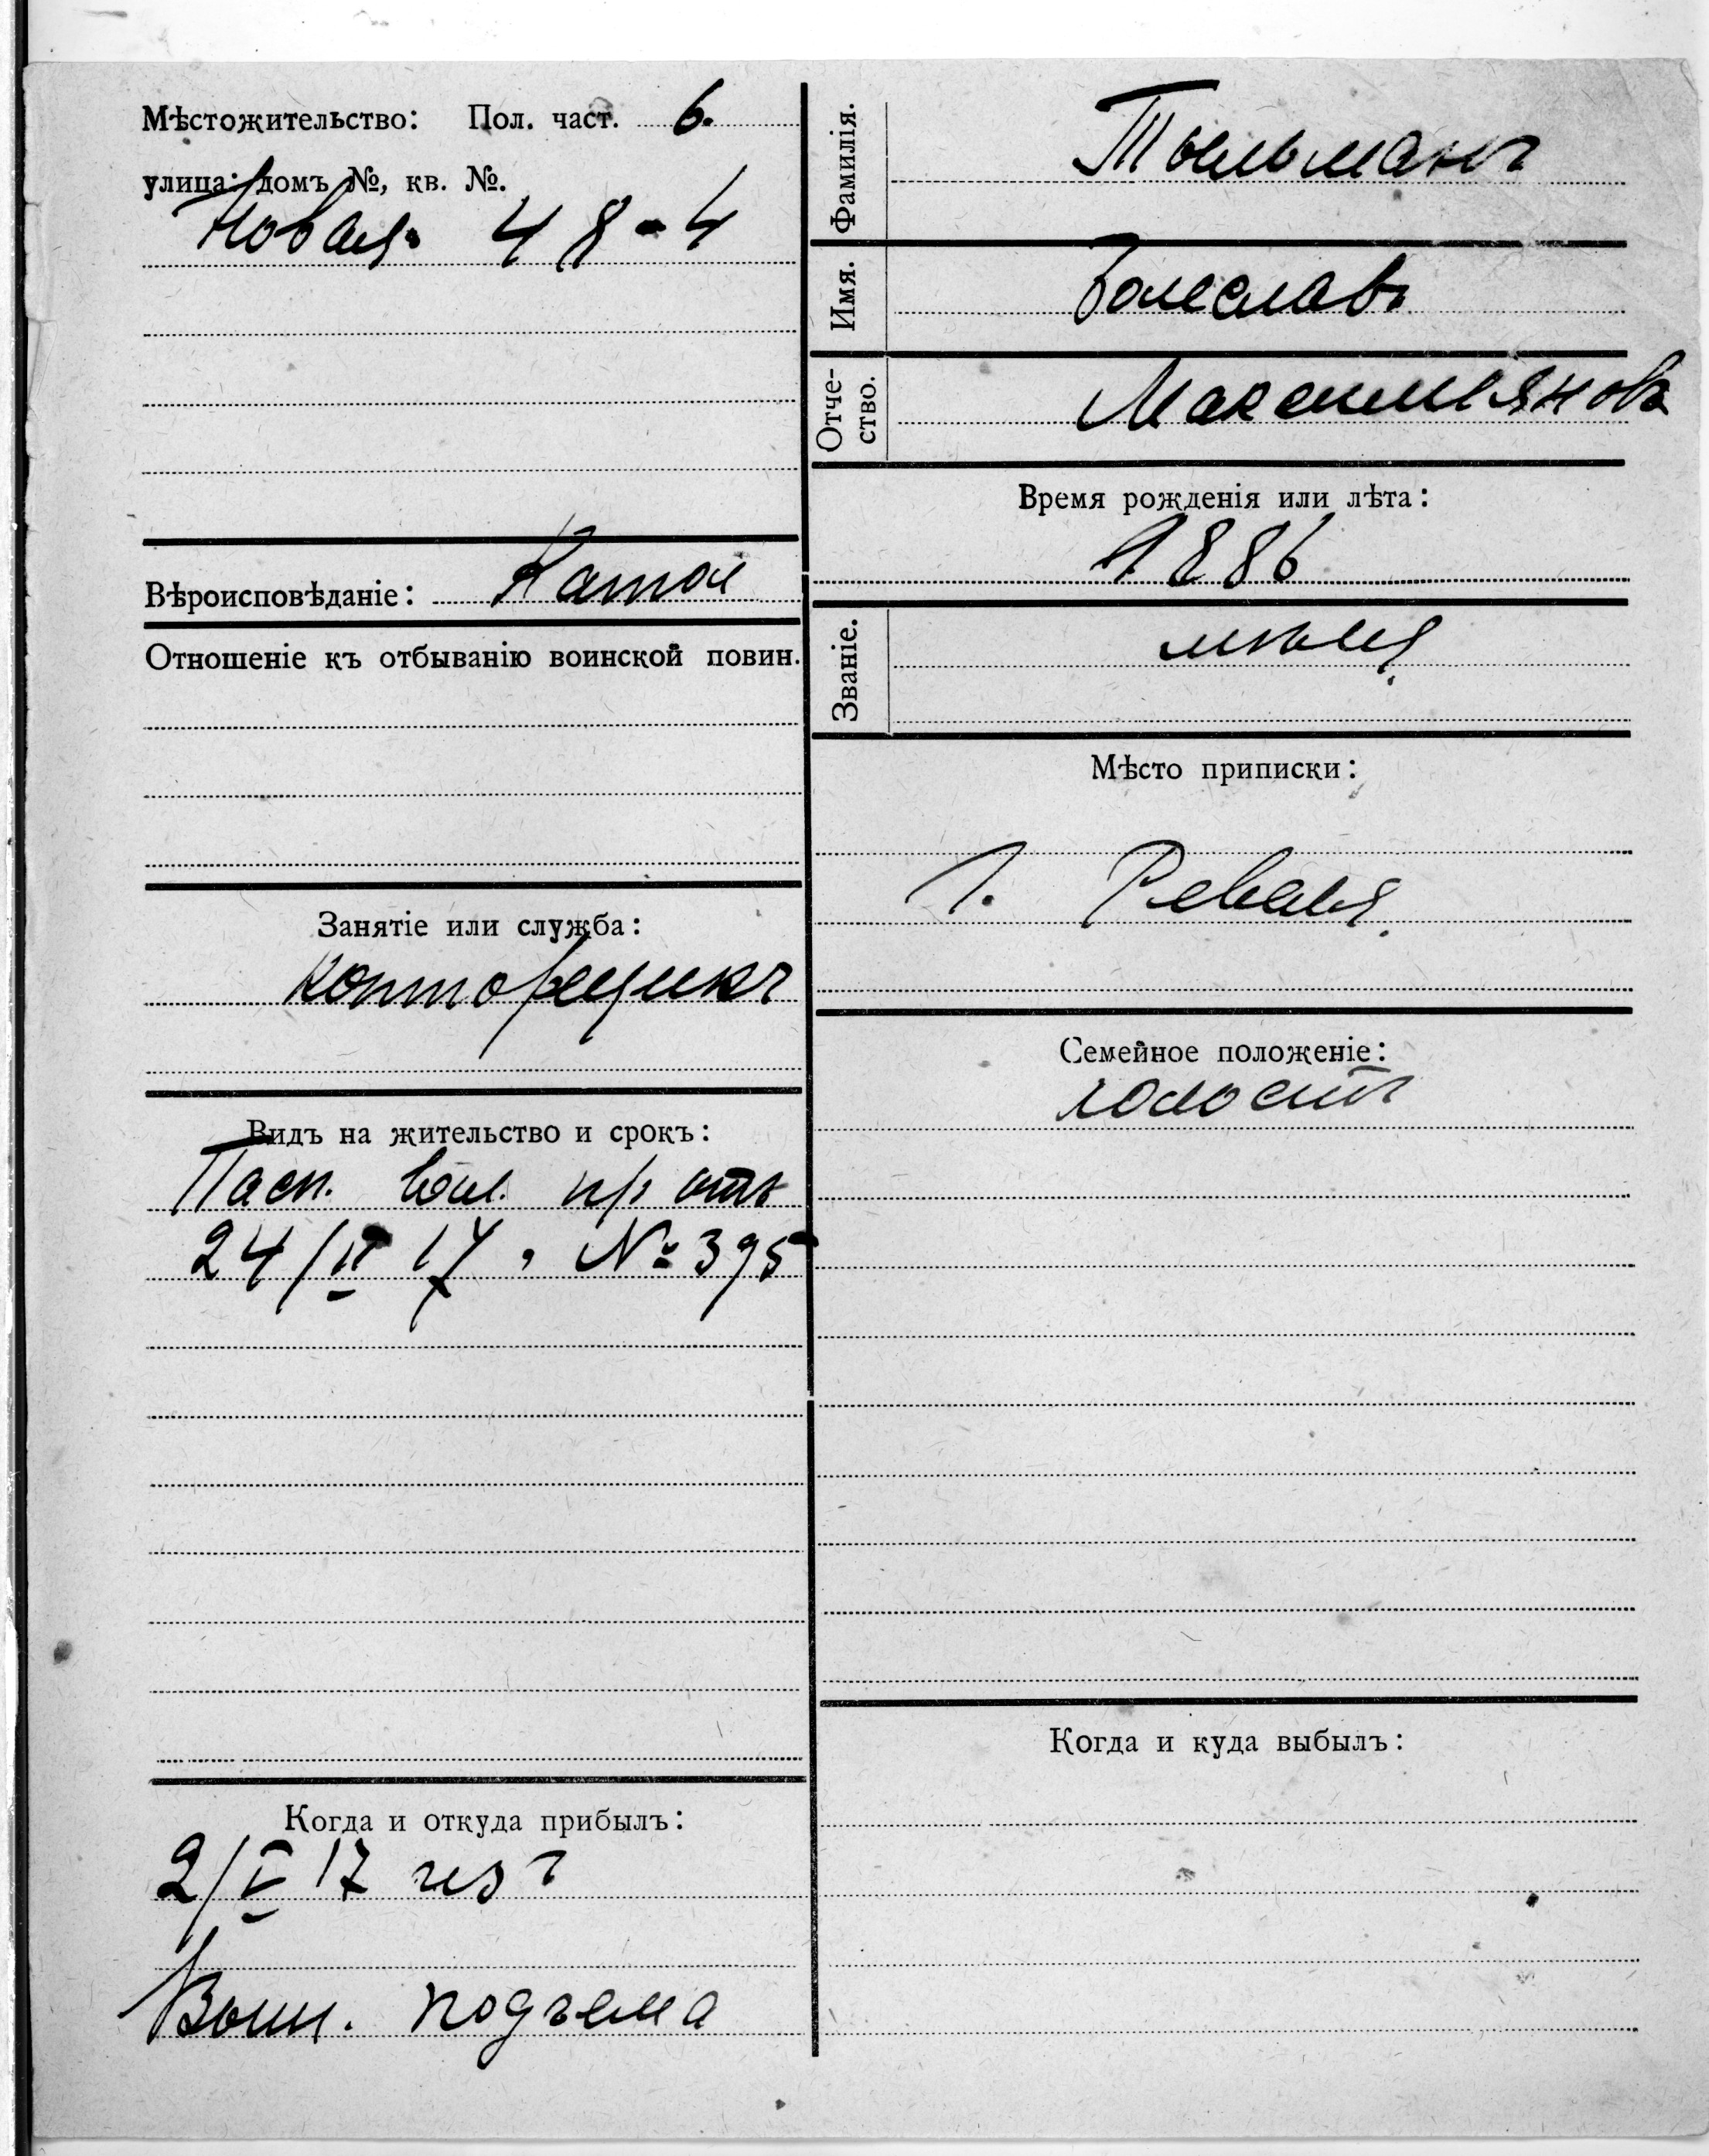 Мѣстожительство: Пол. част. 6.
улица: домъ №, кв. №.
Новая. 48-4
Вѣроисповѣданіе: Катол
Отношеніе къ отбыванію воинской повин.
Занятіе или служба:
Конторщикъ
Видъ на жительство и срокъ:
Пасп. отъ
24/II 17. № 395
Когда и откуда прибылъ:
2/V 17 изъ
подъема
Фамилія. Тыльманъ
Имя. Болеславъ
Отче-
ство. Максимиянов
Время рожденія или лѣта:
1886
Званіе. мѣщ.
Мѣсто приписки:
г. Реваля.
Семейное положеніе:
холостъ
Когда и куда выбылъ: